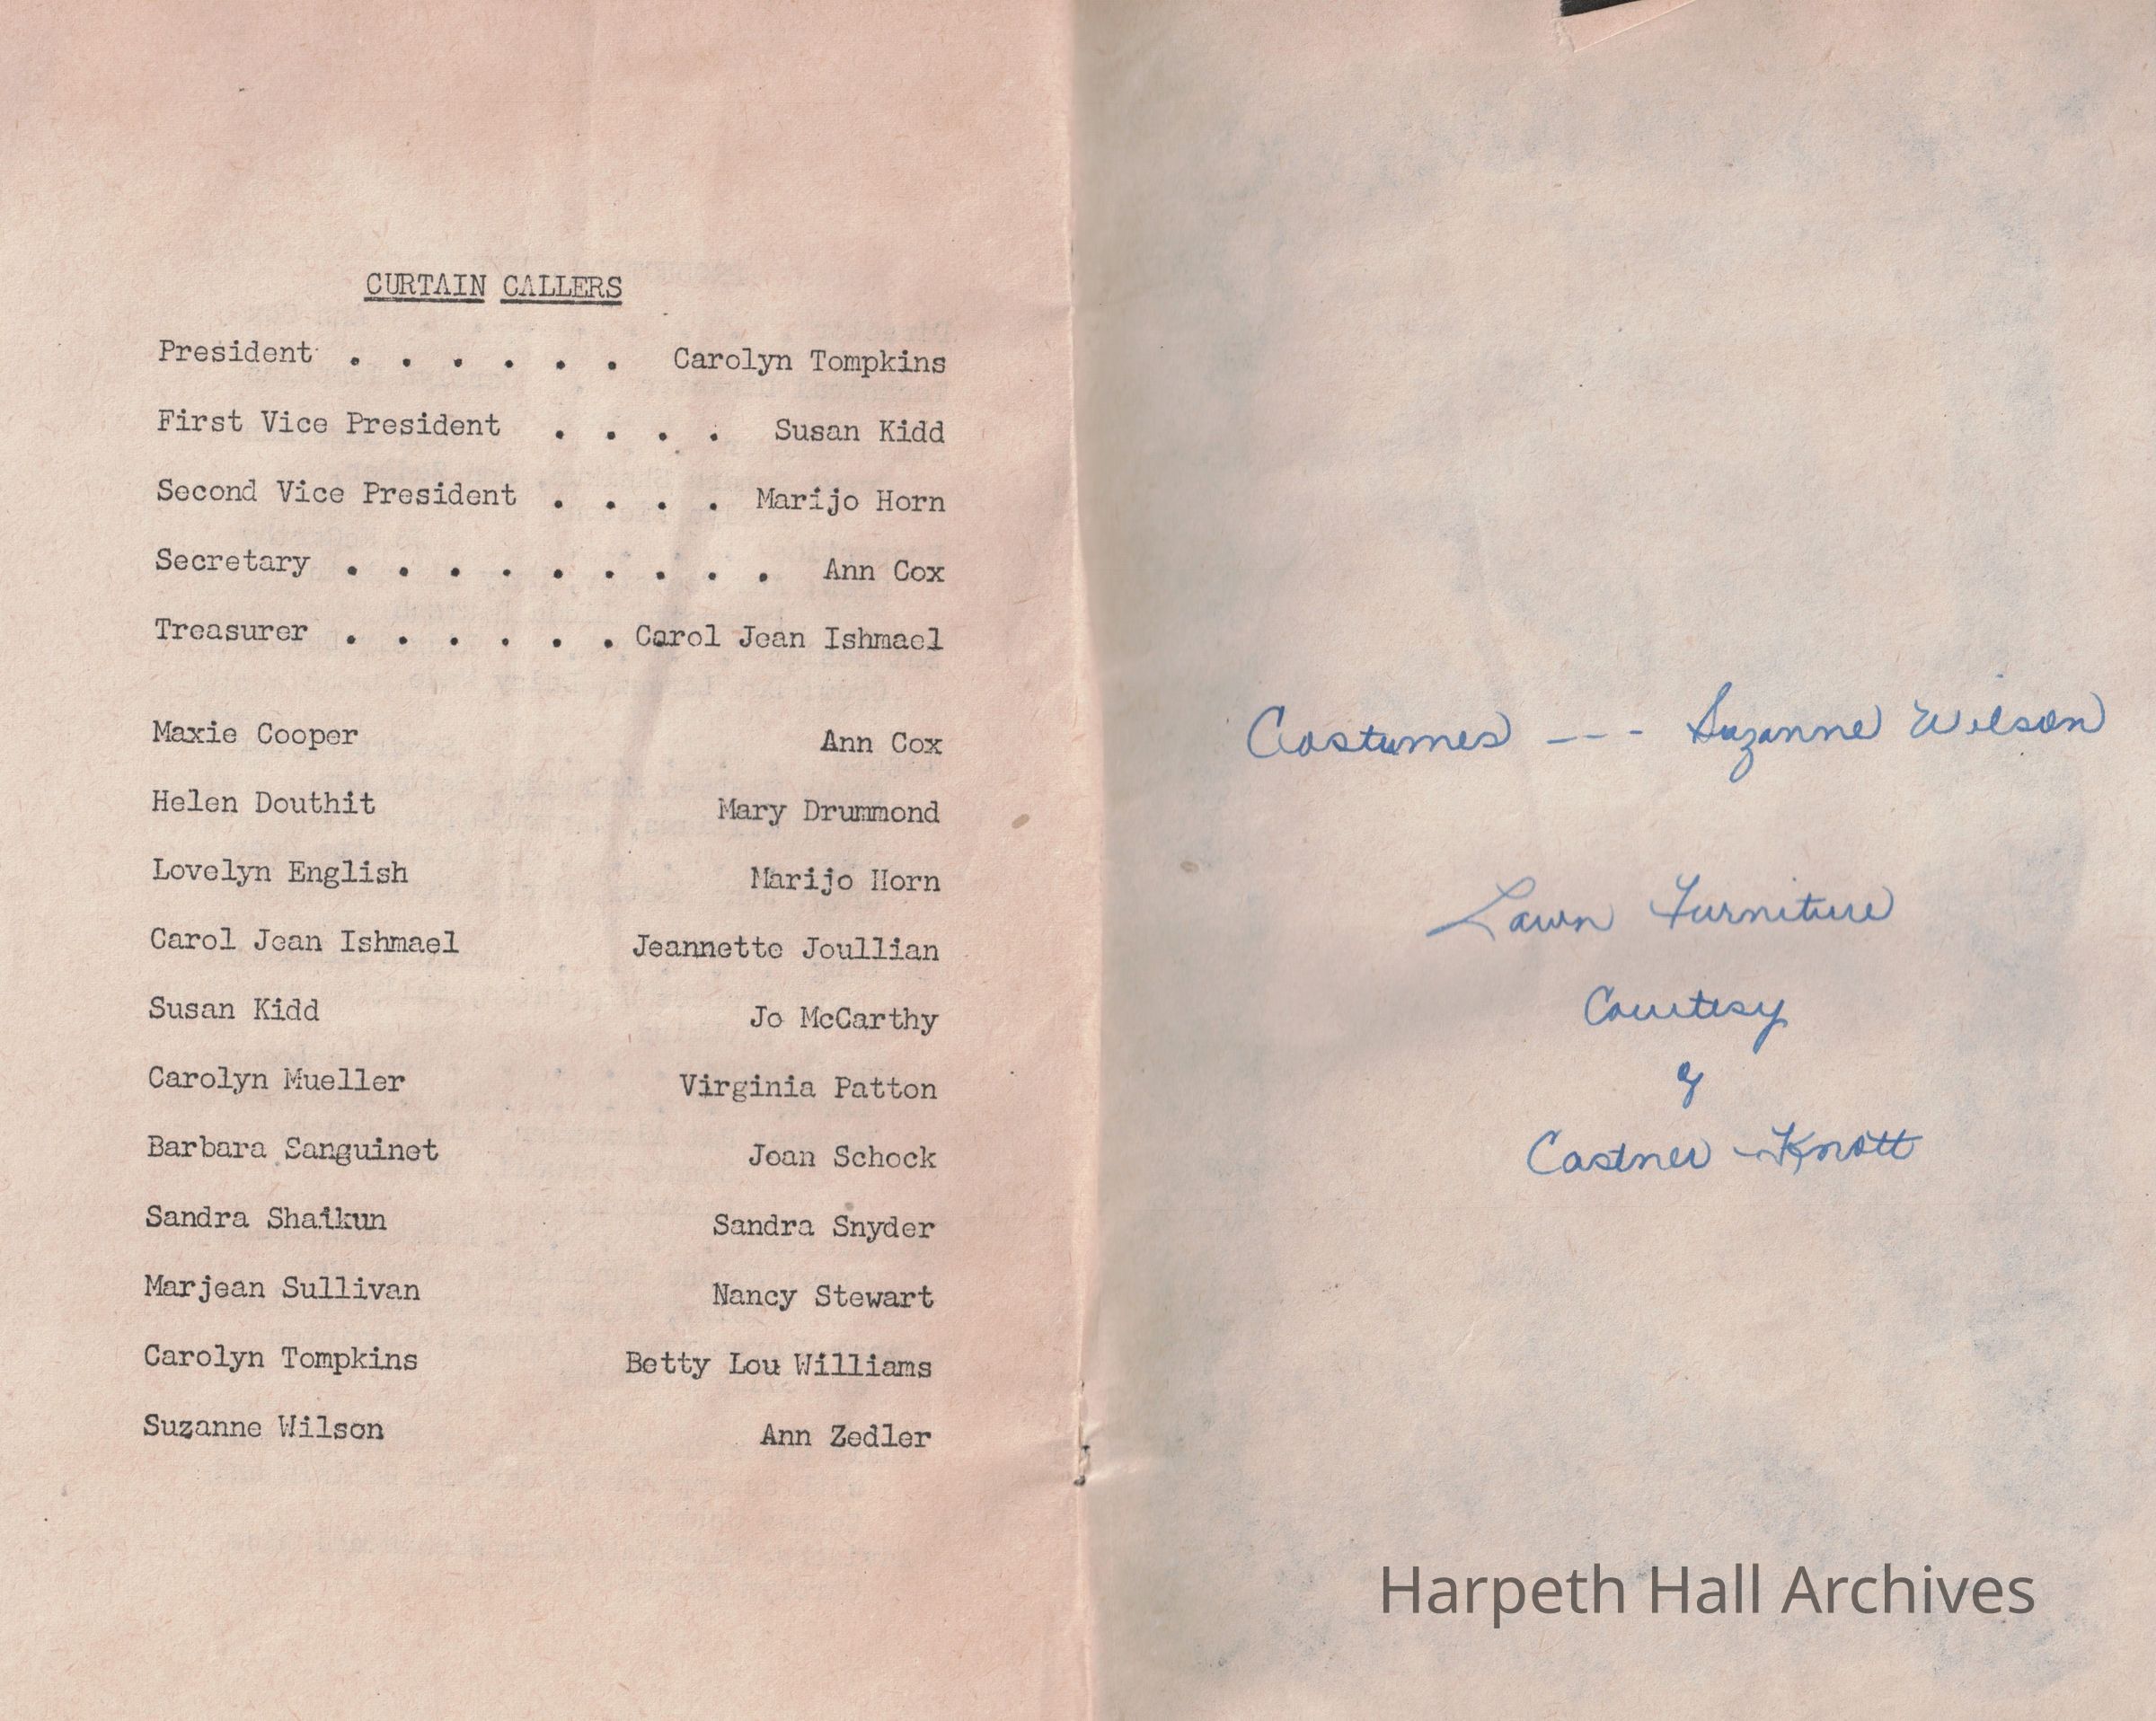 CURTAIN CALLERS
President . . . . . . Carolyn Tompkins
First Vice President . . . . Susan Kidd
Second Vice President . . . . Marijo Horn
Secretary . . . . . . . . . Ann Cox
Treasurer . . . . . . Carol Jean Ishmael
Maxie Cooper Ann Cox
Helen Douthit Mary Drummond
Lovelyn English Marijo Horn
Carol Jean Ishmael Jeannette Joullian
Susan Kidd Jo McCarthy
Carolyn Mueller Virginia Patton
Barbara Sanguinet Joan Schock
Sandra Shaikun Sandra Snyder
Marjean Sullivan Nancy Stewart
Carolyn Tompkins Betty Lou Williams
Suzanne Wilson Ann Zedler
Costumes --- Suzanne Wilson
Lawn Furniture
Courtesy
of
Castner-Knott
Harpeth Hall Archives